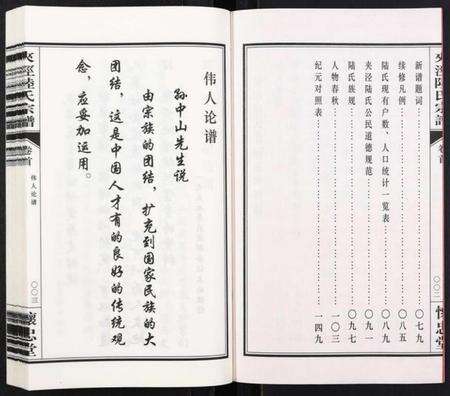 夹泾陆氏宗譜
卷首
〇〇二
懷忠堂
新谱题词……〇七九
续修凡例……〇八五
陆氏现有户数、人口统计一览表……〇八九
夹泾陆氏公民道德规范……〇九一
陆氏族规……〇九七
人物春秋……一〇三
纪元对照表……一四九
伟人论谱
孙中山先生说
由宗族的团结，扩充到国家民族的大
团结，这是中国人才有的良好的传统观
念，应妥加运用。
夾涇陸氏宗譜
卷首
伟人论谱
〇〇三
懷忠堂